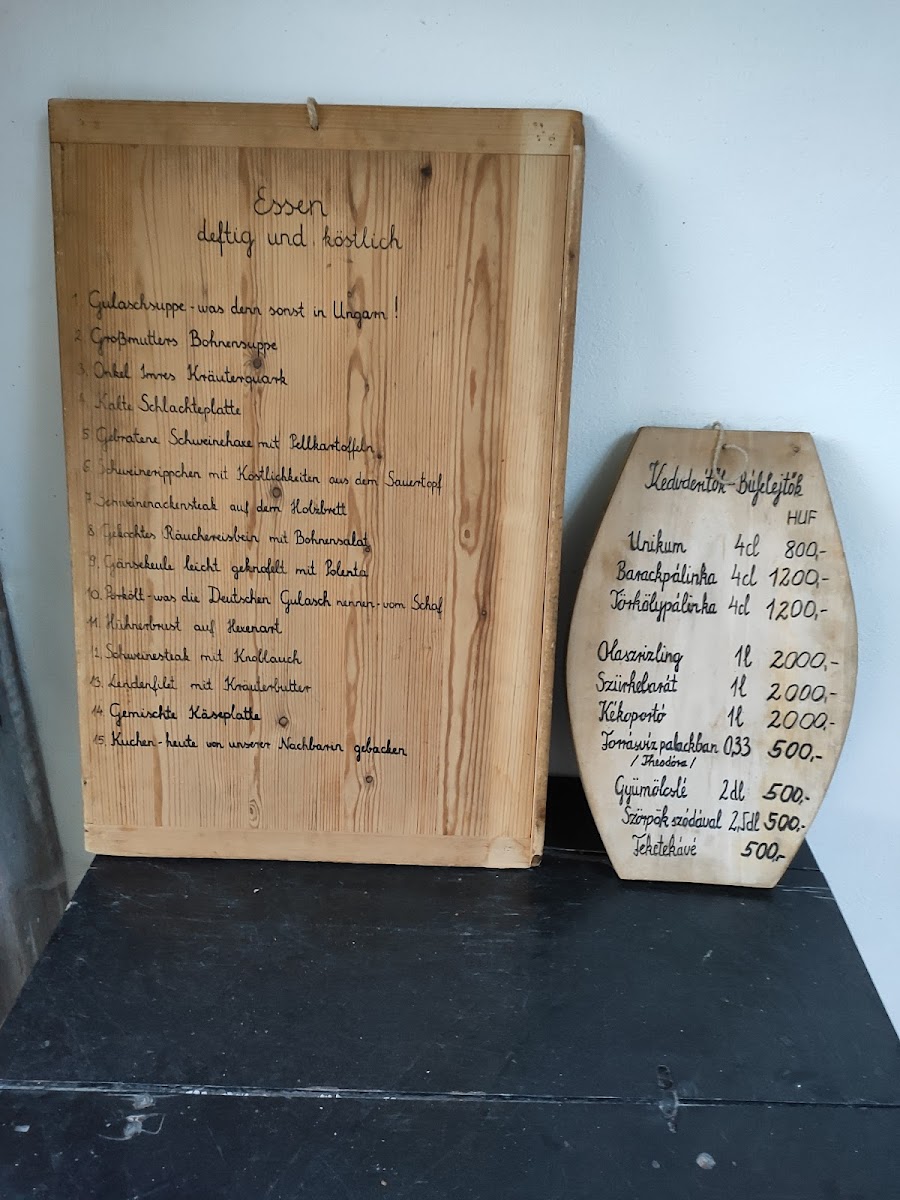 Essen
deftig und köstlich
1. Gulaschsuppe - was denn sonst in Ungarn!
2. Großmutters Bohnensuppe
3. Onkel Imres Kräuterquark
4. Kalte Schlachteplatte
5. Gebratene Schweinehaxe mit Pellkartoffeln
6. Schweinerippchen mit Köstlichkeiten aus dem Sauertopf
7. Schweinenackensteak auf dem Holzbrett
8. Gekochtes Räuchereisbein mit Bohnensalat
9. Gänsekeule leicht geknofelt mit Polenta
10. Pörkölt - was die Deutschen Gulasch nennen - vom Schaf
11. Hühnerbrust auf Hexenart
12. Schweinesteak mit Knoblauch
13. Lendenfilet mit Kräuterbutter
14. Gemischte Käseplatte
15. Kuchen - heute von unserer Nachbarin gebacken
Kedvdeítők - Búfelejtők
HUF
Unikum 4cl 800,-
Barackpálinka 4cl 1200,-
Törkölypálinka 4cl 1200,-
Olaszrizling 1l 2000,-
Szürkebarát 1l 2000,-
Kékoportó 1l 2000,-
Forrásvíz palackban 0,33 500,-
/Theodóra/
Gyümölcslé 2dl 500,-
Szörpök szódával 2,5dl 500,-
Feketekávé 500,-